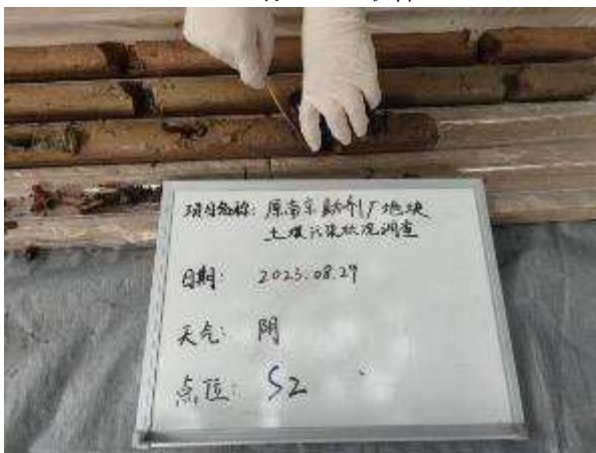 项目名称：原南京助剂厂地块
土壤污染状况调查
日期： 2023.08.29
天气： 阴
点位： S2